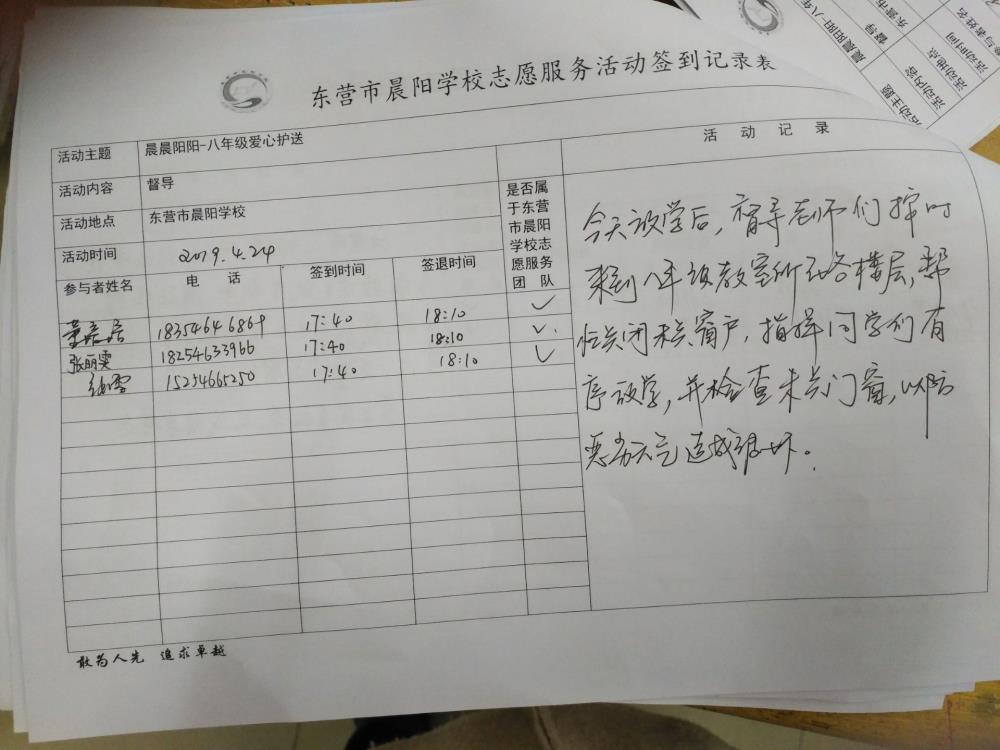 东营市晨阳学校志愿服务活动签到记录表
活动主题 晨晨阳阳-八年级爱心护送
活动内容 督导
活动地点 东营市晨阳学校
活动时间 2019.4.24
参与者姓名 电 话 签到时间 签退时间 是否属于东营市晨阳学校志愿服务团 队
18354646869 17:40 18:10 ✓
张丽雯 18254633966 17:40 18:10 ✓
15254665250 17:40 18:10 ✓
活 动 记 录
今天放学后,督导老师们按时
来到八年级教室所在各楼层,帮
忙关闭未关窗户,指挥同学们有
序放学,并检查未关门窗,以防
恶劣天气造成损坏。
敢为人先 追求卓越
晨晨阳阳-八年
督导
东营市
活动主题
活动内容
活动地点
活动时间